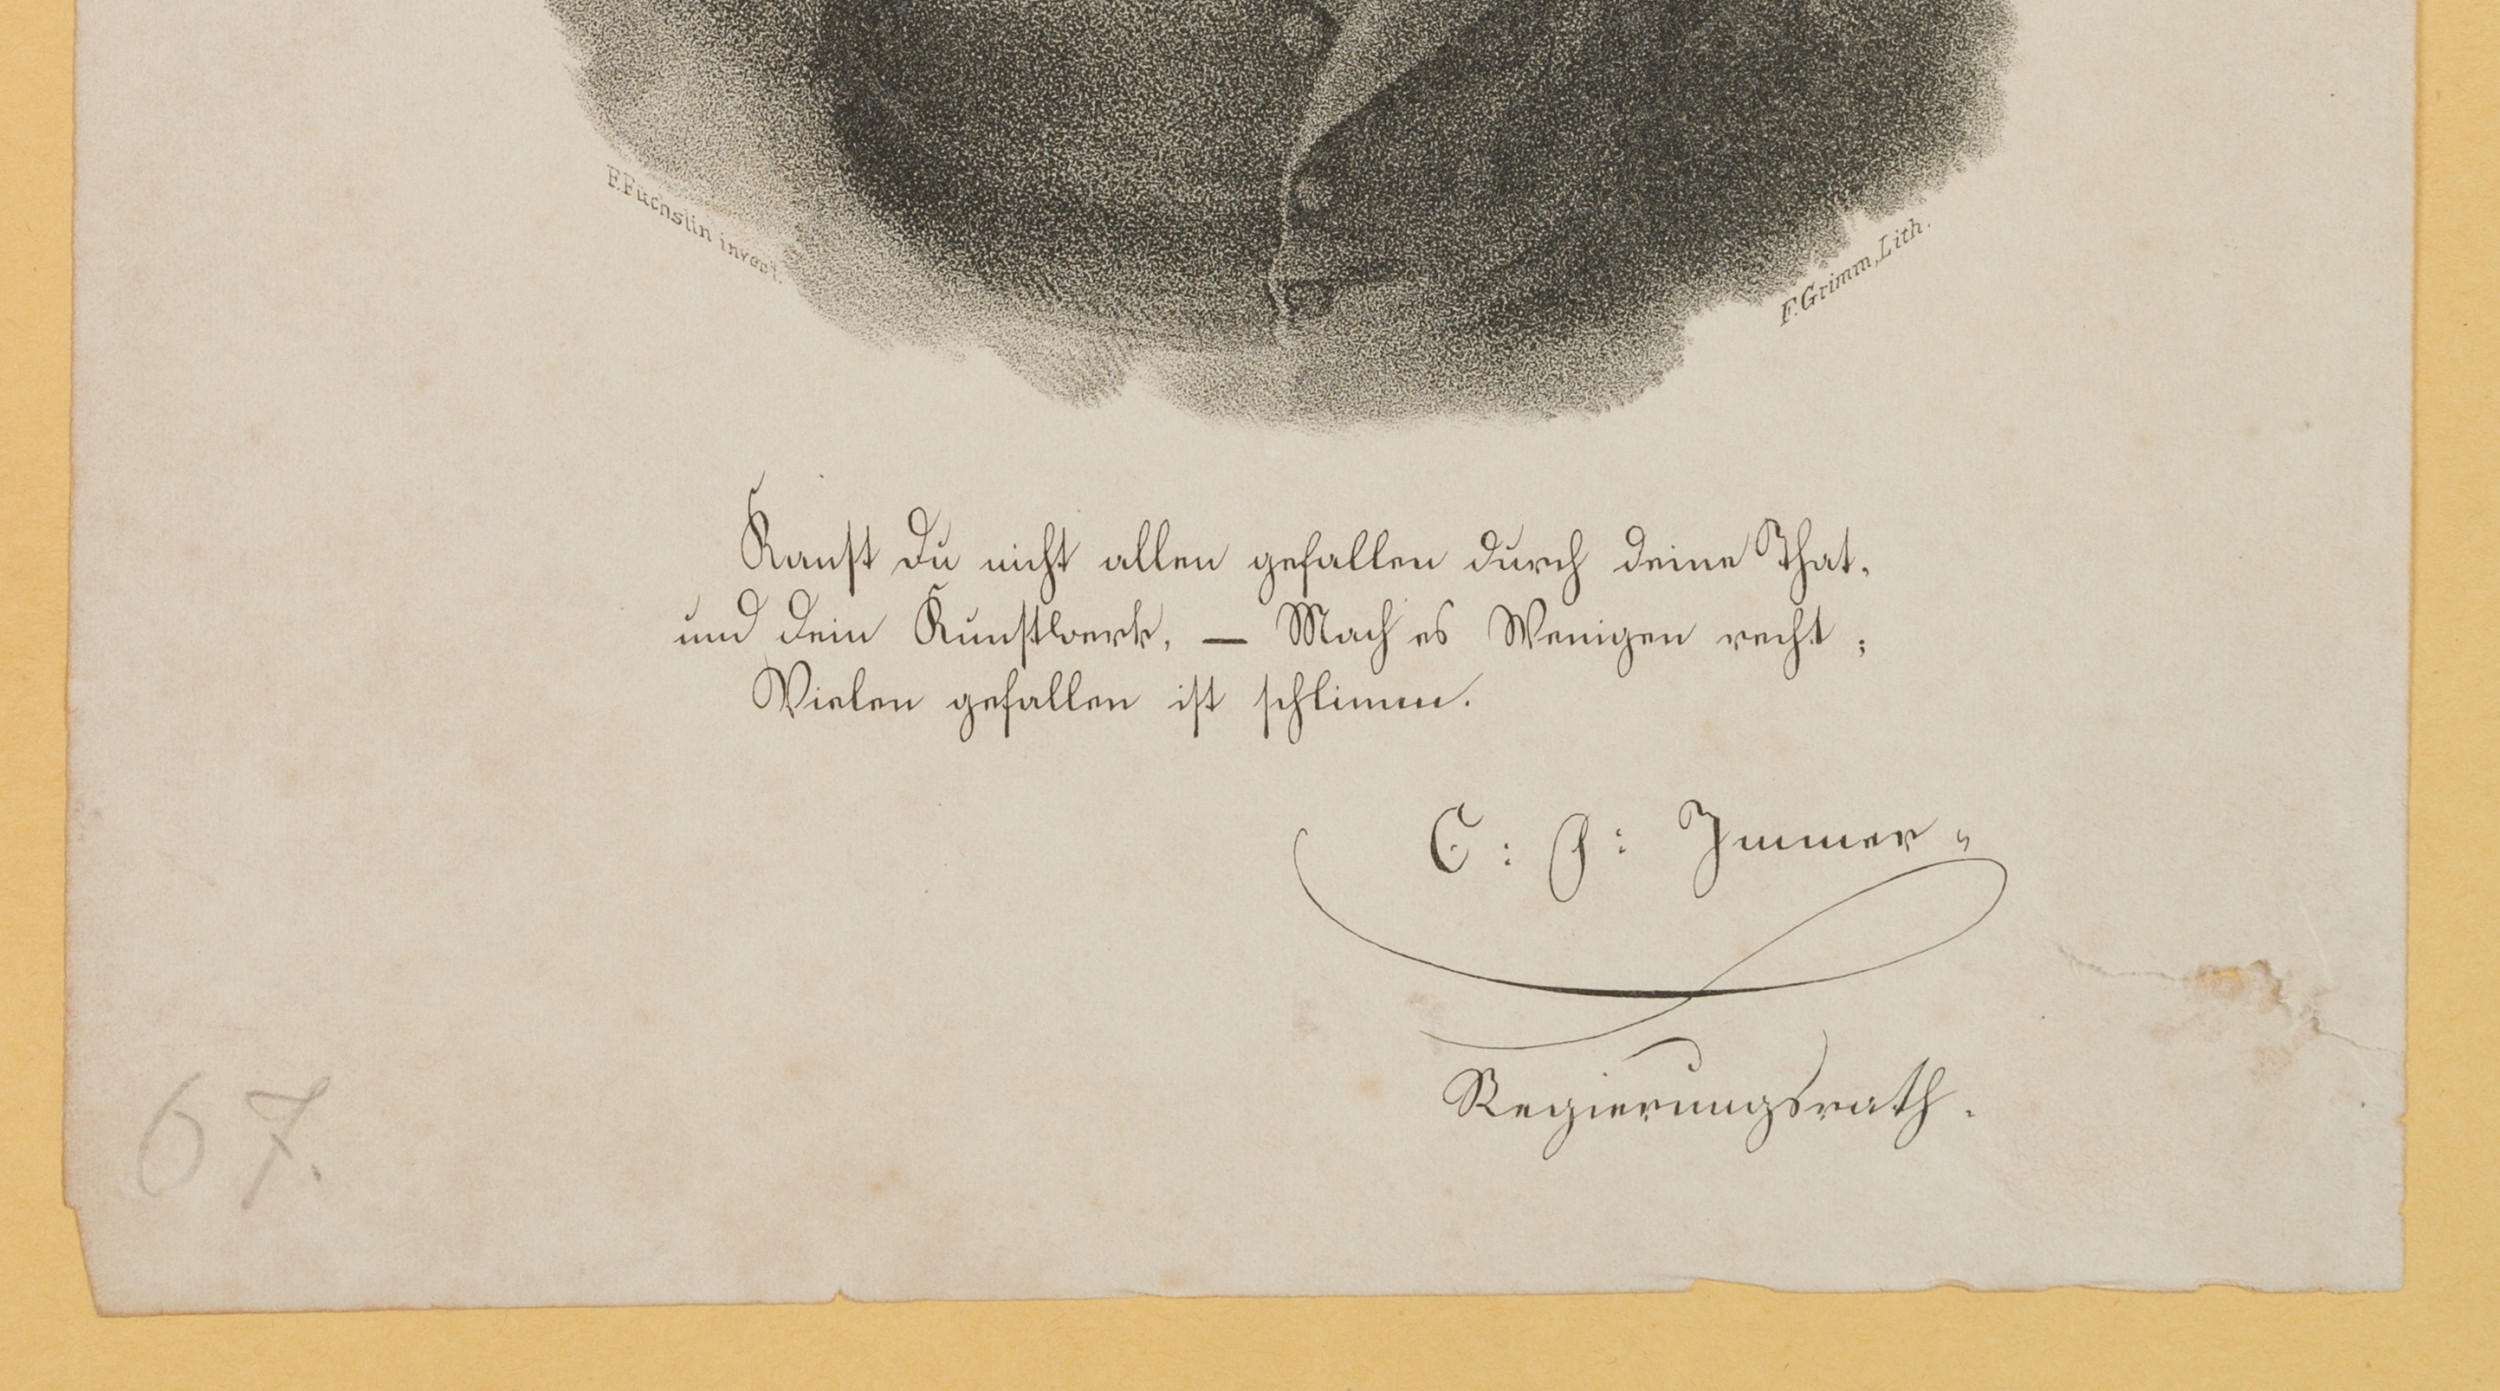 F. Füchslin invect.
F. Grimm, Lith.
Kanst Du nicht allen gefallen durch deine That,
und dein Kunstwerk, — Mach es Wenigen recht ;
Vielen gefallen ist schlimm.
C : J : Immer
Regierungsrath.
67.